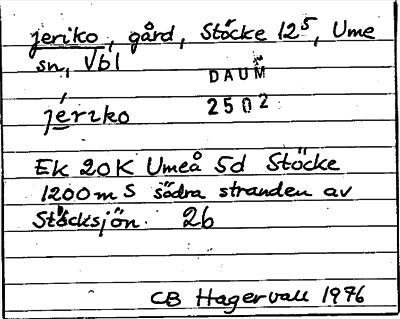 jeriko, gård, Stöcke 12⁵, Ume
sn, Vbl
DAUM
2502
jerıko
EK 20K Umeå 5d Stöcke
1200 m S södra stranden av
Stöcksjön. 2b
CB Hagervall 1976